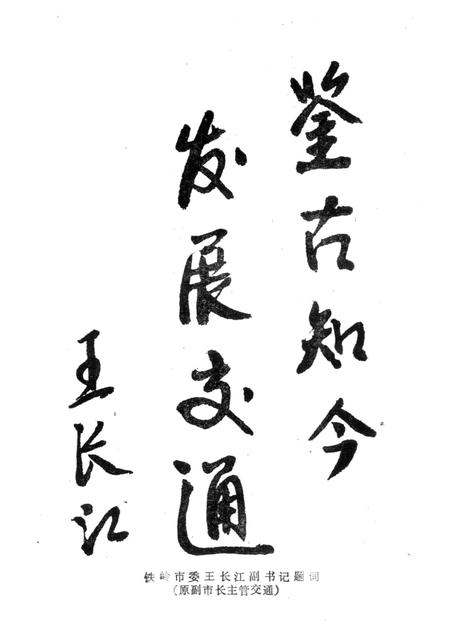 鉴古知今
发展交通
王长江
铁岭市委王长江副书记题词
(原副市长主管交通)